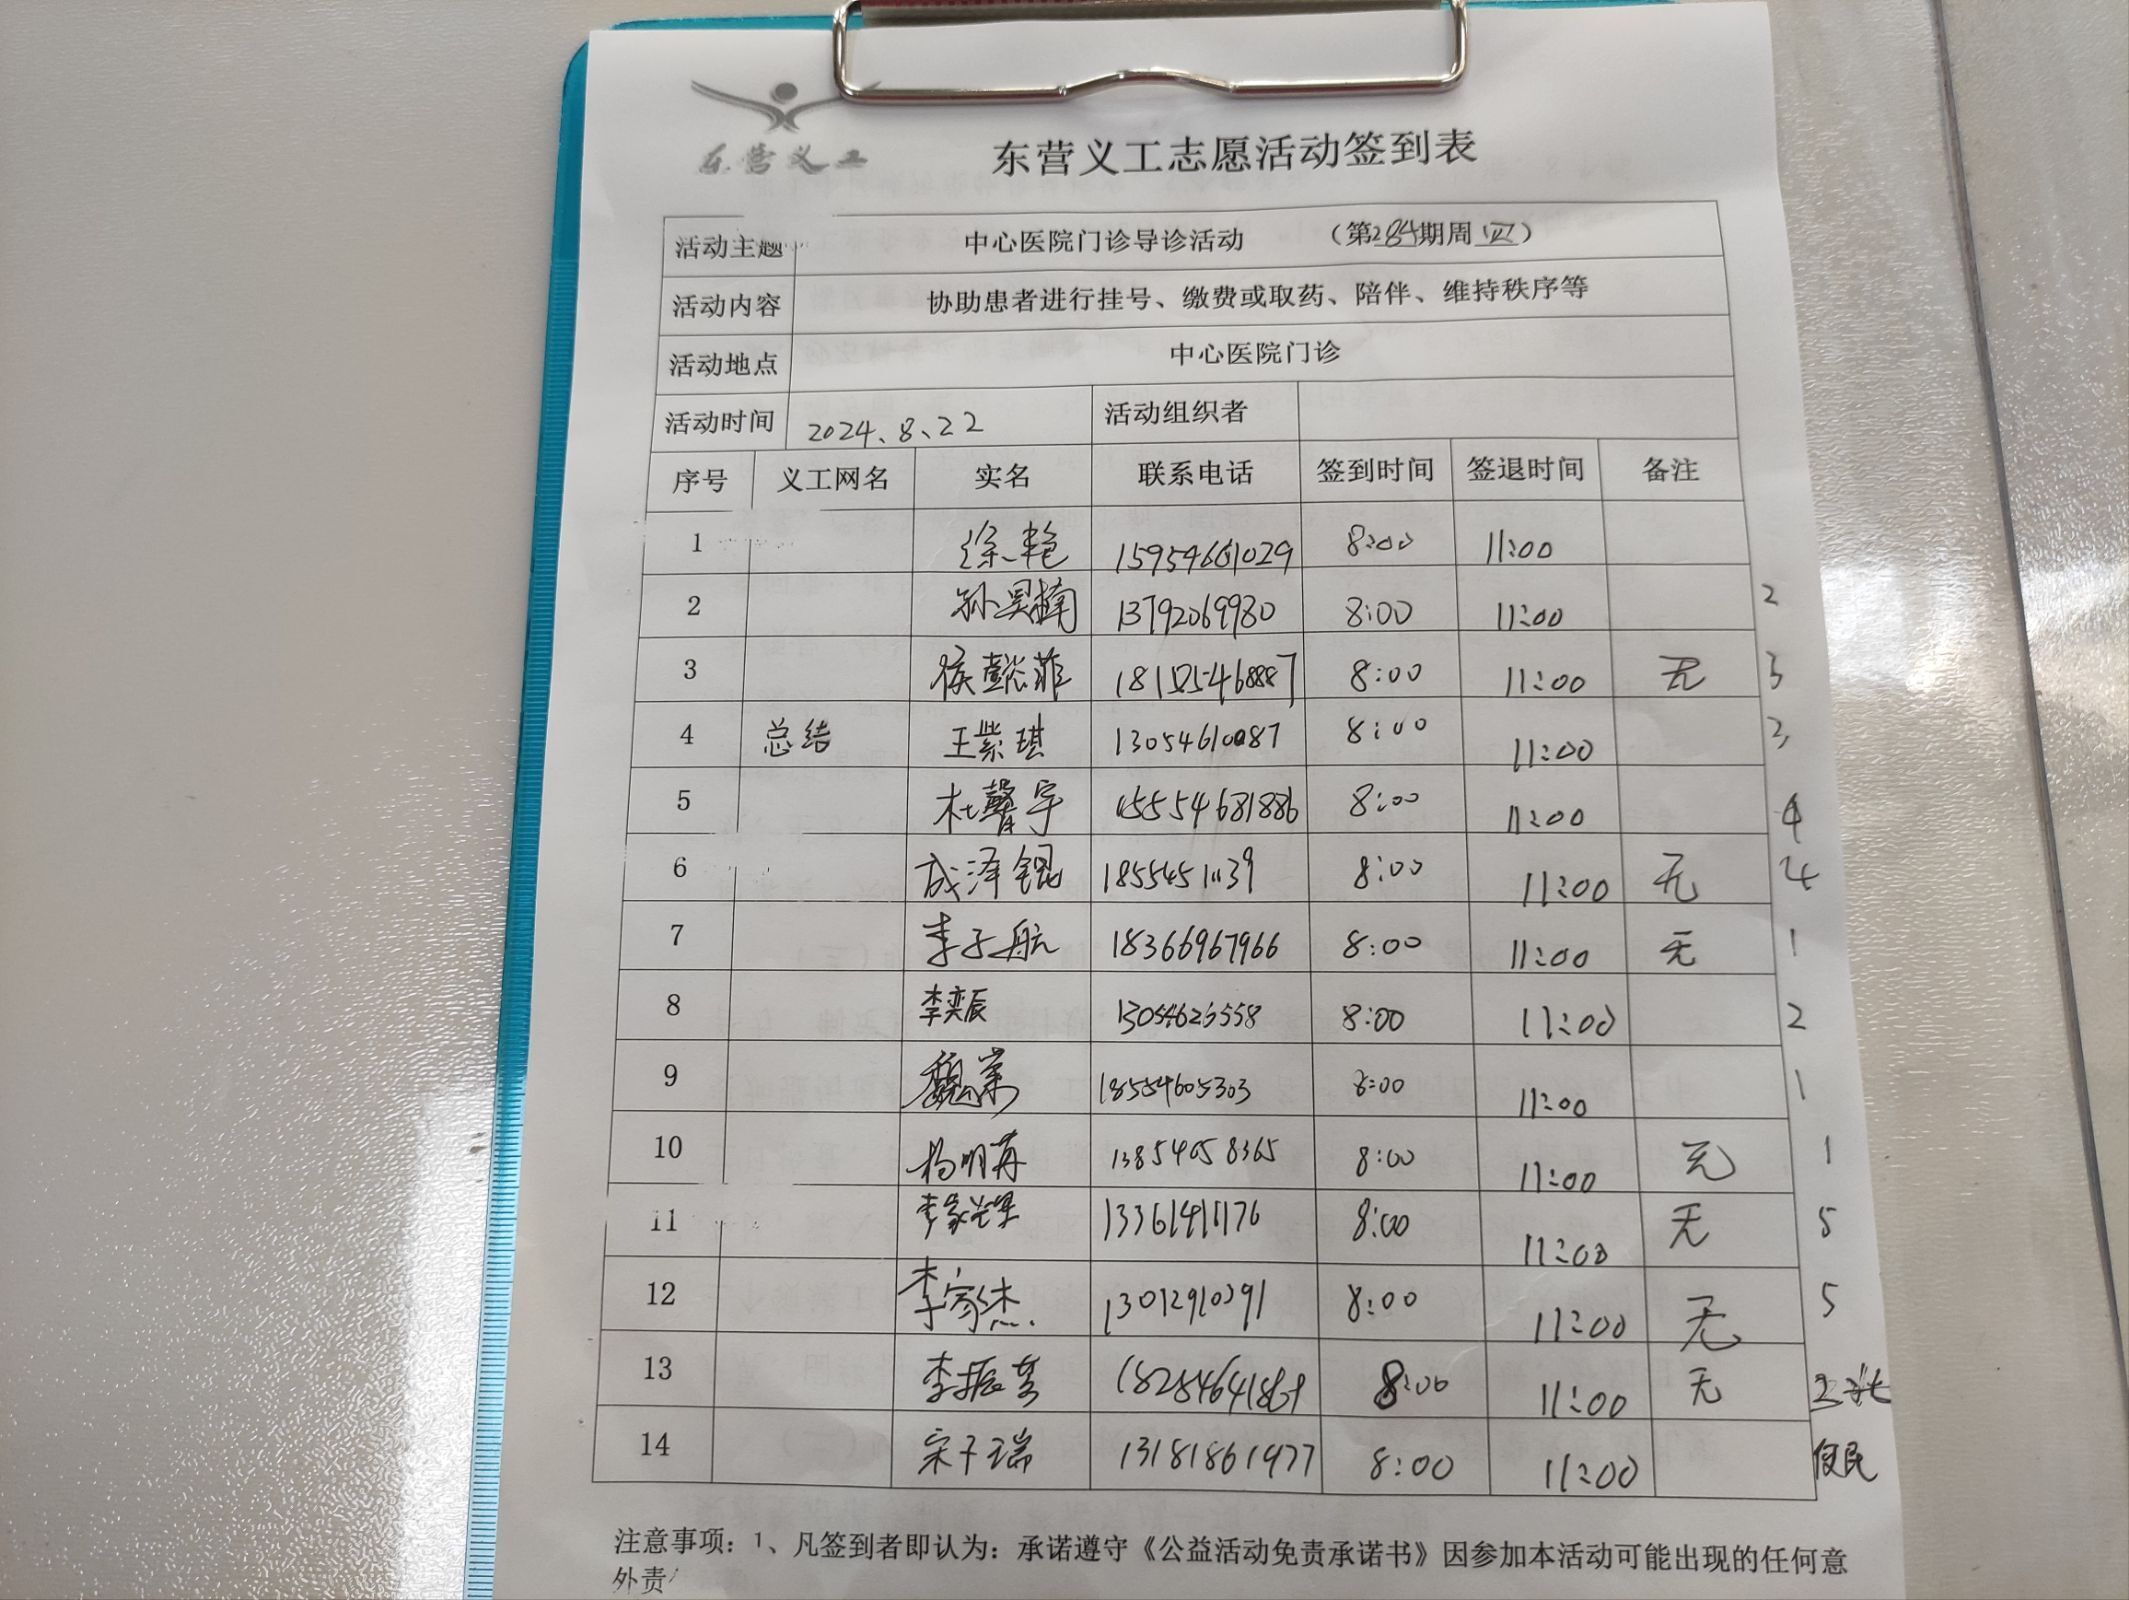 东营义工
东营义工志愿活动签到表
活动主题 中心医院门诊导诊活动 （第284期周四）
活动内容 协助患者进行挂号、缴费或取药、陪伴、维持秩序等
活动地点 中心医院门诊
活动时间 2024、8、22 活动组织者
序号 义工网名 实名 联系电话 签到时间 签退时间 备注
1 徐艳 15954661029 8:00 11:00
2 孙昊楠 13792069980 8:00 11:00 2
3 侯懿菲 8:00 11:00 无 3
4 总结 王紫琪 13054610087 8:00 11:00 3
5 杜馨宇 15554681886 8:00 11:00 4
6 成泽锟 18554511139 8:00 11:00 无 4
7 李子航 18366967966 8:00 11:00 无 1
8 李奕辰 13054626558 8:00 11:00 2
9 魏荣 18554605303 8:00 11:00 1
10 杨明苒 13854058365 8:00 11:00 无 1
11 李家耀 8:00 11:00 无 5
12 李家杰 13012910291 8:00 11:00 无 5
13 李振 8:00 11:00 无
14 宋子瑞 13181861977 8:00 11:00 便民
注意事项：1、凡签到者即认为：承诺遵守《公益活动免责承诺书》因参加本活动可能出现的任何意
外责